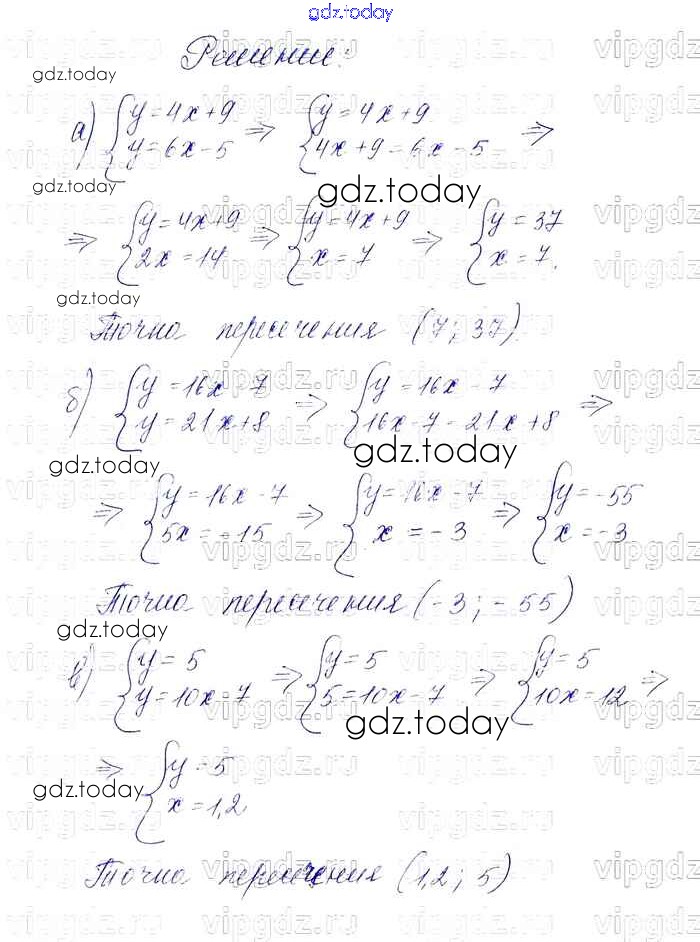 gdz.today
Решение:
gdz.today
а) { y = 4x + 9 ⇒ { y = 4x + 9 ⇒
y = 6x - 5 4x + 9 = 6x - 5
gdz.today gdz.today
⇒ { y = 4x + 9 ⇒ { y = 4x + 9 ⇒ { y = 37
2x = 14 x = 7 x = 7.
gdz.today
Точка пересечения (7; 37)
б) { y = 16x - 7 ⇒ { y = 16x - 7 ⇒
y = 21x + 8 16x - 7 = 21x + 8
gdz.today gdz.today
⇒ { y = 16x - 7 ⇒ { y = 16x - 7 ⇒ { y = -55
5x = -15 x = -3 x = -3
Точка пересечения (-3; -55)
gdz.today
в) { y = 5 ⇒ { y = 5 ⇒ { y = 5
y = 10x - 7 5 = 10x - 7 10x = 12 ⇒
gdz.today
⇒ { y = 5
gdz.today x = 1,2
Точка пересечения (1,2; 5)
vipgdz.ru